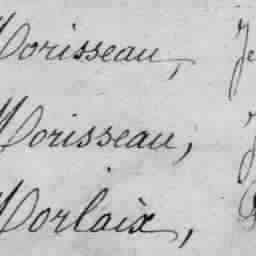 Morisseau, Je
Morisseau, J
Morlaix,